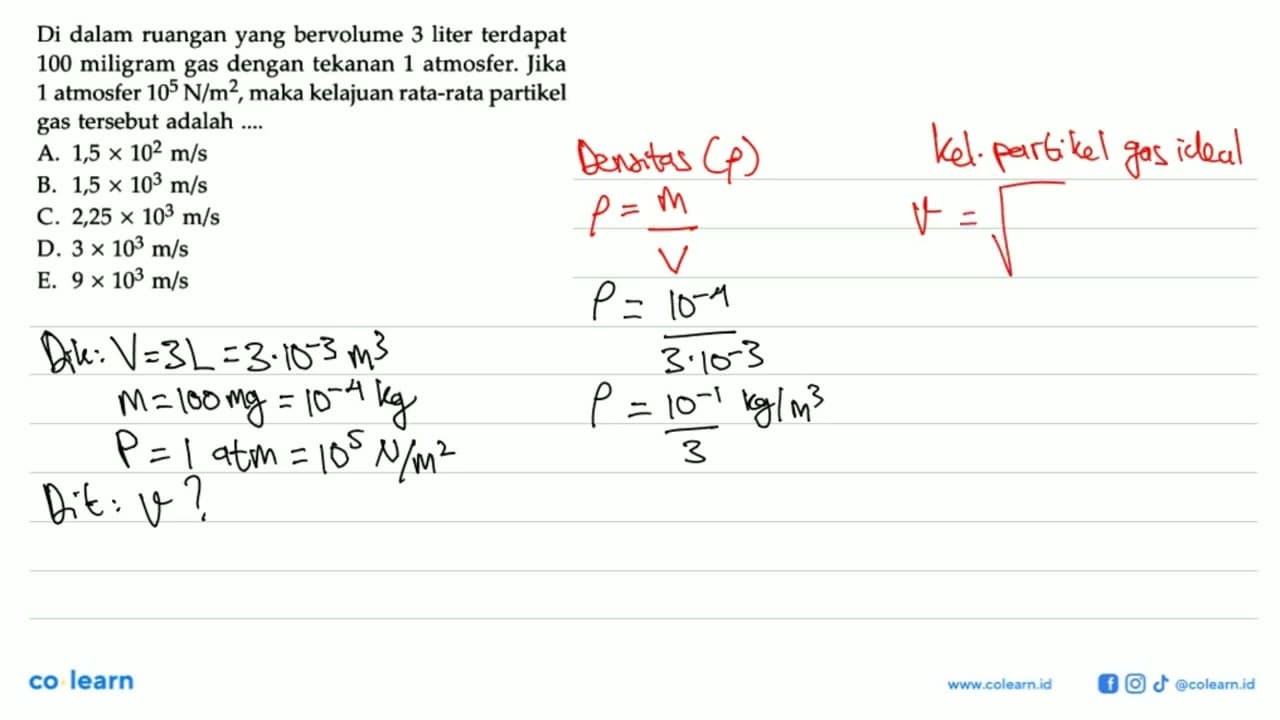 Di dalam ruangan yang bervolume 3 liter terdapat
100 miligram gas dengan tekanan 1 atmosfer. Jika
1 atmosfer 10⁵ N/m², maka kelajuan rata-rata partikel
gas tersebut adalah ....
A. 1,5 × 10² m/s
B. 1,5 × 10³ m/s
C. 2,25 × 10³ m/s
D. 3 × 10³ m/s
E. 9 × 10³ m/s
Dik: V = 3L = 3·10⁻³ m³
m = 100 mg = 10⁻⁴ kg
P = 1 atm = 10⁵ N/m²
Dit: v?
Densitas (ρ)
ρ = m
V
ρ = 10⁻⁴
3·10⁻³
ρ = 10⁻¹ kg/m³
3
Kel. partikel gas ideal
v = √
co learn
www.colearn.id
@colearn.id